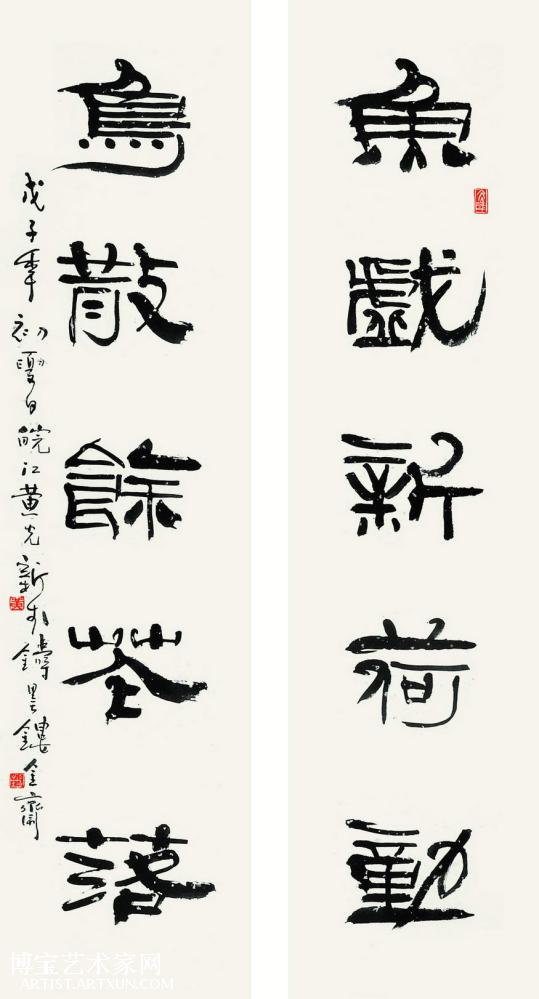 魚戲新荷動
鳥散餘花落
戊子年初夏日皖江黃光新於鑄墨鏤金齋
博宝艺术家网
ARTIST.ARTXUN.COM